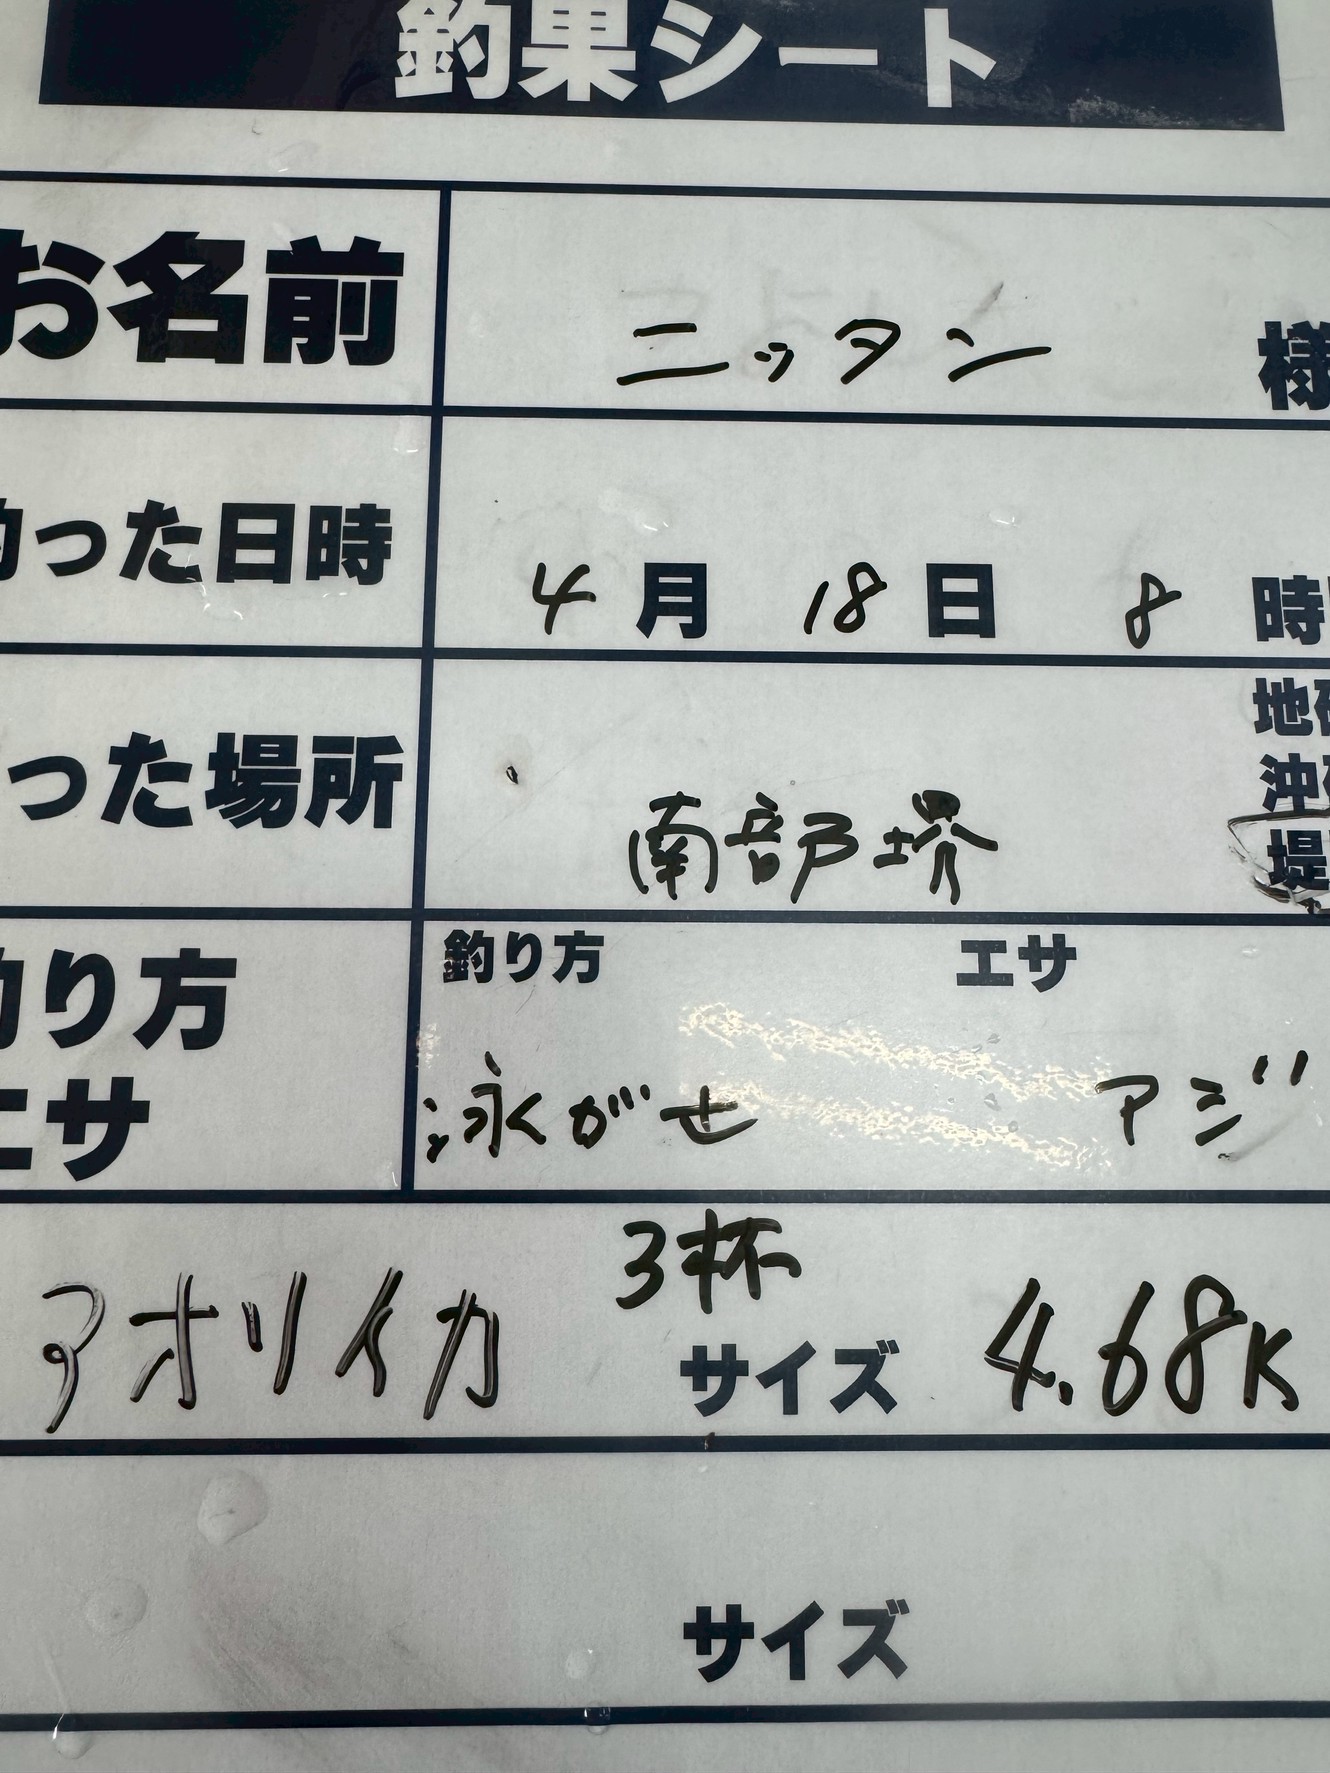 釣果シート
お名前 ニッタン 様
釣った日時 4月 18日 8 時
った場所 南部堺
地
沖
堤
釣り方 エサ
釣り方
エサ
泳がせ アジ
アオリイカ 3杯
サイズ 4.68K
サイズ